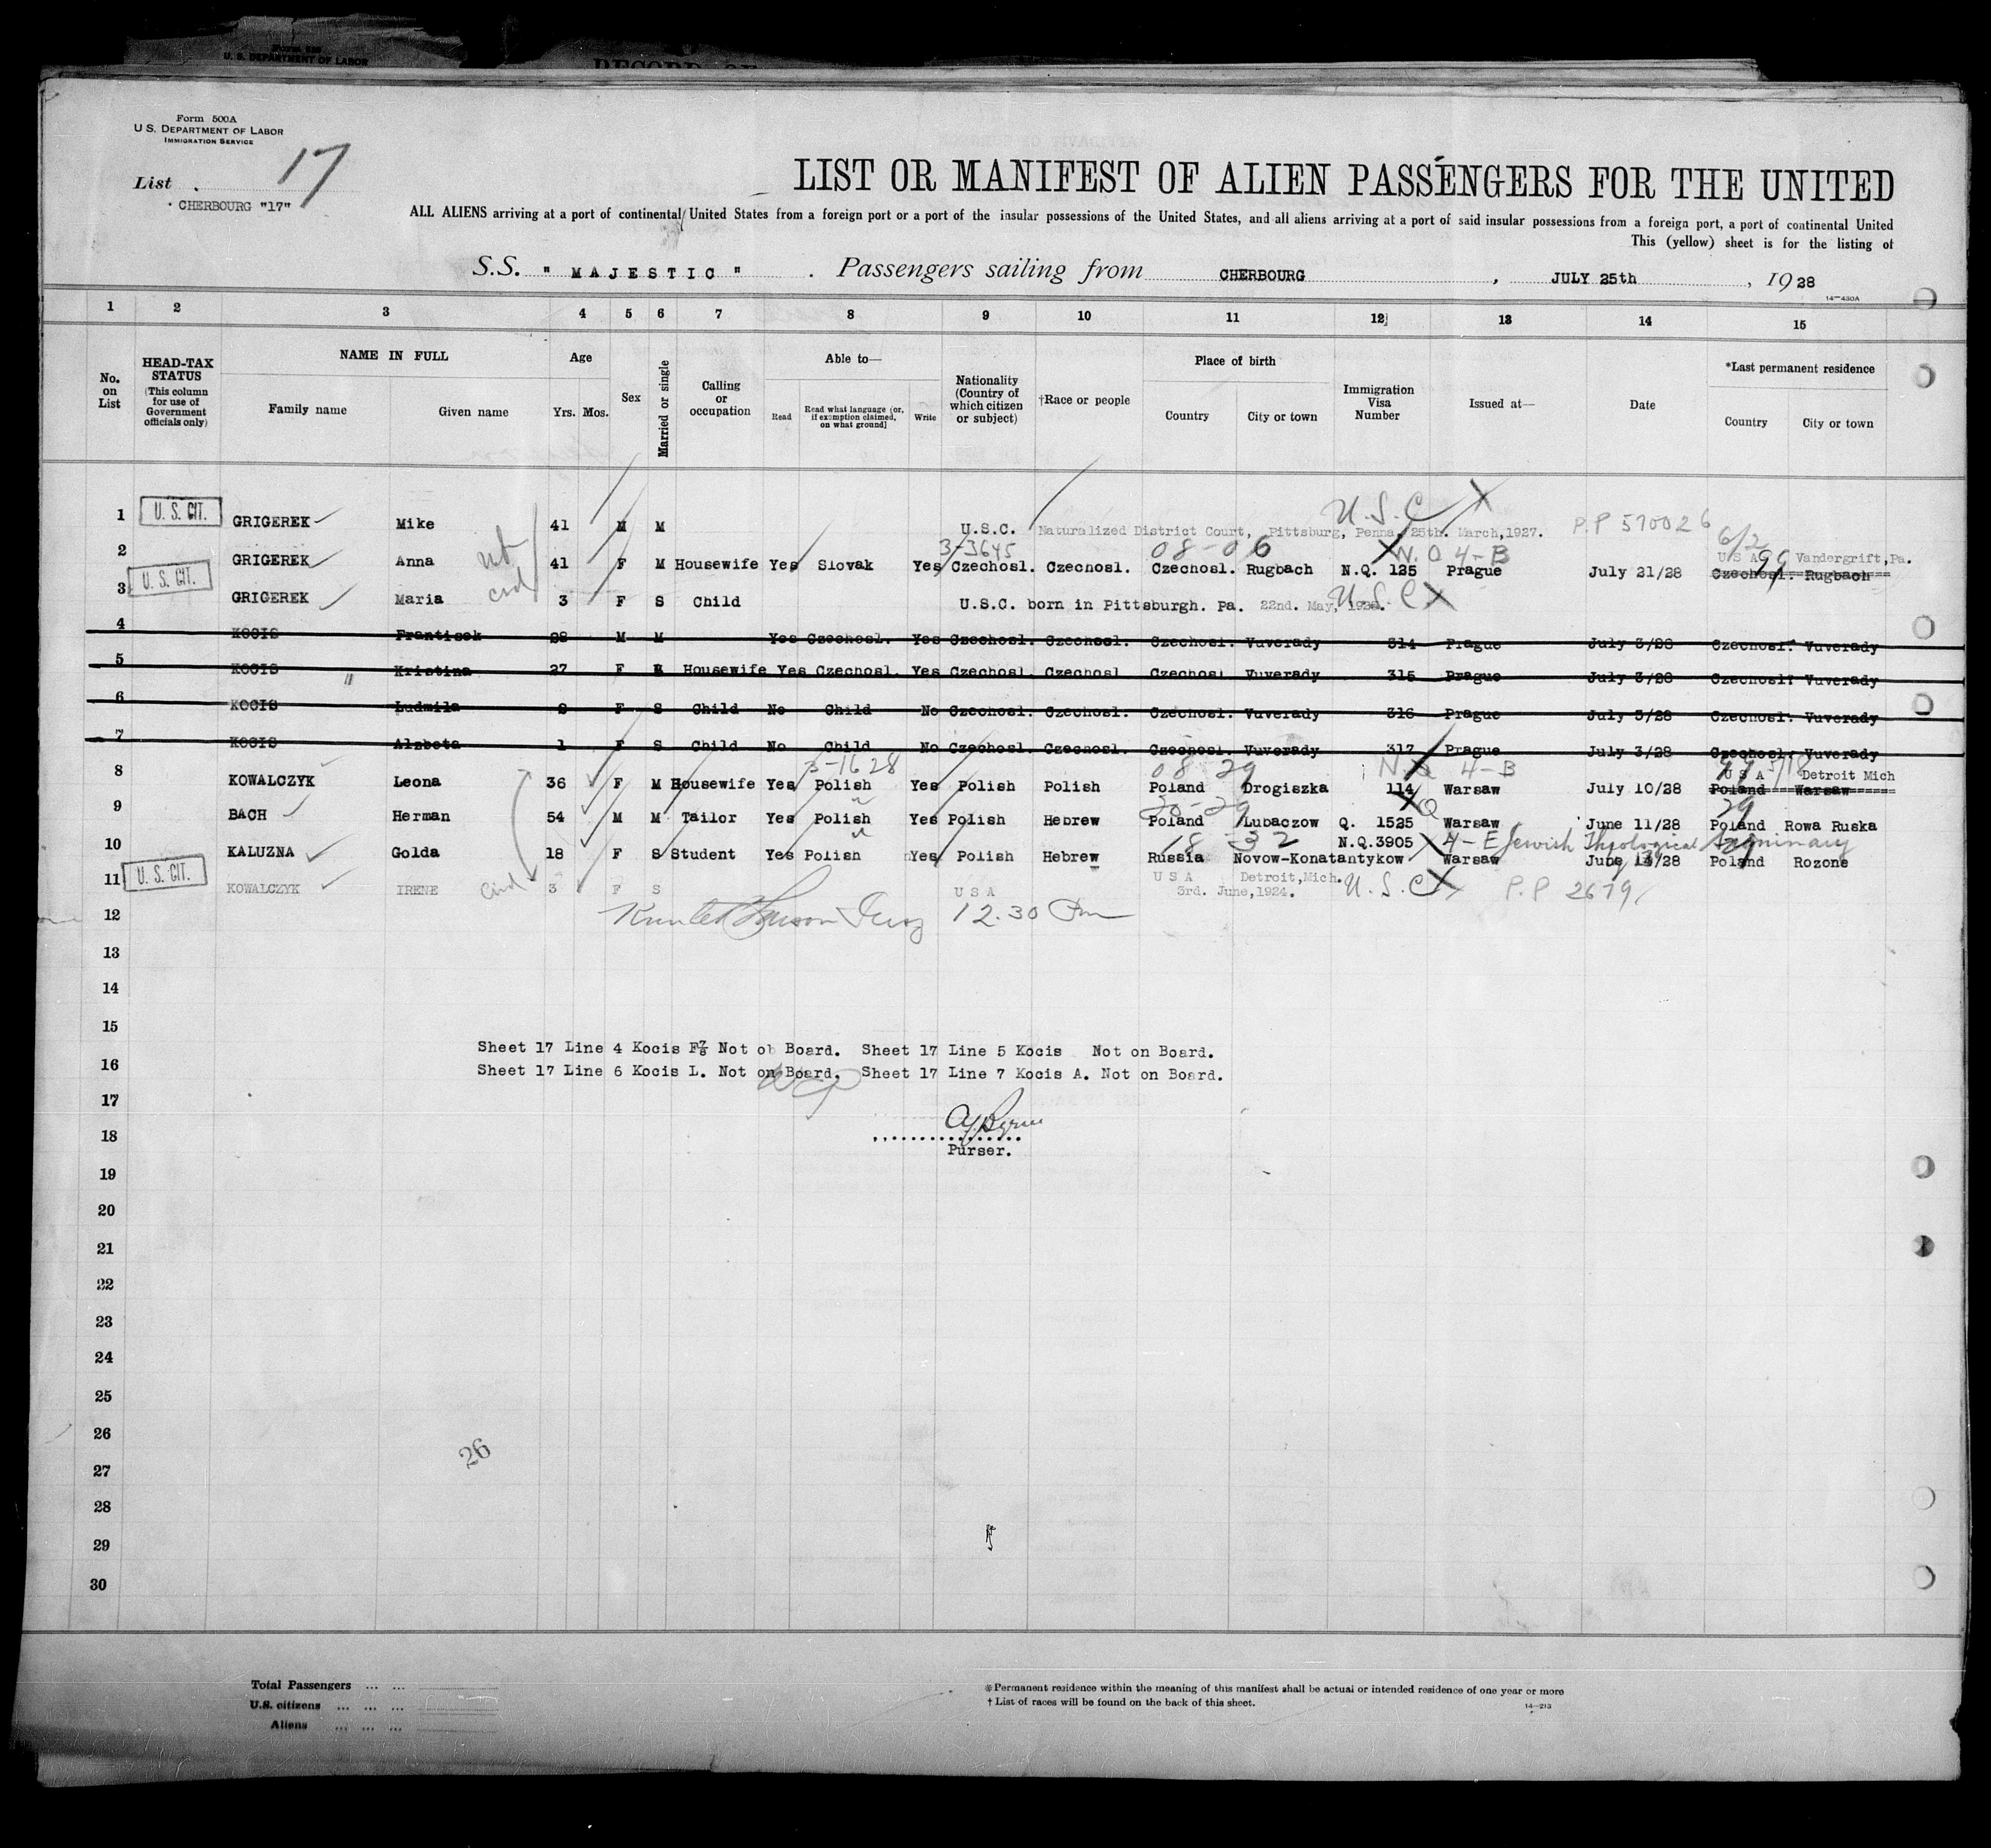 Form 500A
U. S. DEPARTMENT OF LABOR
IMMIGRATION SERVICE
List 17
CHERBOURG "17"
LIST OR MANIFEST OF ALIEN PASSENGERS FOR THE UNITED
ALL ALIENS arriving at a port of continental United States from a foreign port or a port of the insular possessions of the United States, and all aliens arriving at a port of said insular possessions from a foreign port, a port of continental United
This (yellow) sheet is for the listing of
S.S. " MAJESTIC " . Passengers sailing from CHERBOURG , JULY 25th , 1928
14—430A
1 2 3 4 5 6 7 8 9 10 11 12 13 14 15
No. on List
HEAD-TAX STATUS (This column for use of Government officials only)
NAME IN FULL Family name Given name
Age Yrs. Mos.
Sex
Married or single
Calling or occupation
Able to— Read Read what language (or, if exemption claimed, on what ground) Write
Nationality (Country of which citizen or subject)
†Race or people
Place of birth Country City or town
Immigration Visa Number
Issued at—
Date
*Last permanent residence Country City or town
1 U. S. CIT. GRIGEREK Mike 41 M M U.S.C. Naturalized District Court, Pittsburg, Penna, 25th. March, 1927. U.S.C P.P 570026
3-3645 08-06 N.Q 4-B 6/2 99
2 GRIGEREK Anna 41 F M Housewife Yes Slovak Yes Czechosl. Czechosl. Czechosl. Rugbach N.Q. 125 Prague July 21/28 U S A Vandergrift, Pa. Czechosl. Rugbach
3 U. S. CIT. GRIGEREK Maria 3 F S Child U.S.C. born in Pittsburgh. Pa. 22nd. May, U.S.C
4 KOCIS Frantisek 28 M M Yes Czechosl. Yes Czechosl. Czechosl. Czechosl. Vuverady 314 Prague July 3/28 Czechosl. Vuverady
5 KOCIS " Kristina 27 F Housewife Yes Czechosl. Yes Czechosl. Czechosl Czechosl Vuverady 315 Prague July 3/28 Czechosl. Vuverady
6 KOCIS Ludmila 9 F S Child No Child No Czechosl. Czechosl. Czechosl. Vuverady 316 Prague July 3/28 Czechosl. Vuverady
7 KOCIS Alzbeta 1 F S Child No Child No Czechosl. Czechosl. Czechosl. Vuverady 317 Prague July 3/28 Czechosl. Vuverady
3-1628 08 29 4-B
8 KOWALCZYK Leona 36 F M Housewife Yes Polish Yes Polish Polish Poland Drogiszka 114 Warsaw July 10/28 U S A Detroit Mich Poland Warsaw
9 BACH Herman 54 M M Tailor Yes Polish Yes Polish Hebrew Poland Lubaczow Q. 1525 Warsaw June 11/28 Poland Rowa Ruska
18 - 32 4-E Jewish Theological Seminary
10 KALUZNA Golda 18 F S Student Yes Polish Yes Polish Hebrew Russia Novow-Konatantykow N.Q.3905 Warsaw Poland Rozone
11 U. S. CIT. KOWALCZYK IRENE 3 F S U S A U S A Detroit, Mich. 3rd. June, 1924. U.S.C P.P 2679
12 12.30 Pm
13
14
15
Sheet 17 Line 4 Kocis F Not ob Board. Sheet 17 Line 5 Kocis Not on Board.
16 Sheet 17 Line 6 Kocis L. Not on Board. Sheet 17 Line 7 Kocis A. Not on Board.
17
18
Purser.
19
20
21
22
23
24
25
26
26
27
28
29
30
Total Passengers
U.S. citizens
Aliens
*Permanent residence within the meaning of this manifest shall be actual or intended residence of one year or more
†List of races will be found on the back of this sheet. 14—213